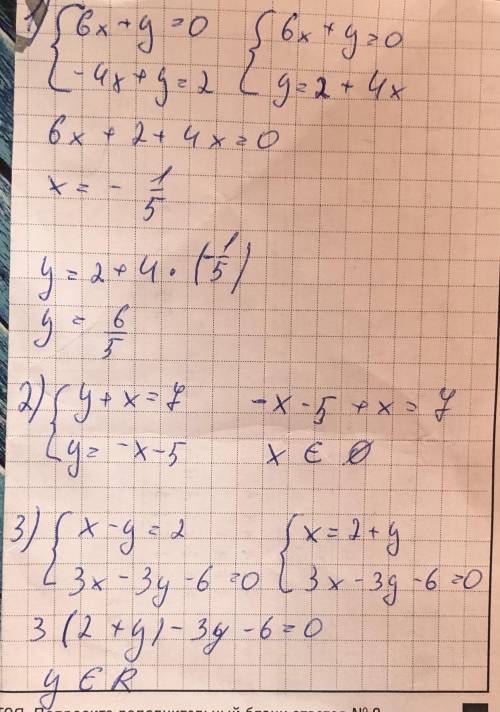 1) { 6x + y = 0   { 6x + y = 0
-4x + y = 2   y = 2 + 4x
6x + 2 + 4x = 0
x = - 1/5
y = 2 + 4 · (-1/5)
y = 6/5
2) { y + x = 7   -x - 5 + x = 7
y = -x - 5   x ∈ ∅
3) { x - y = 2   { x = 2 + y
3x - 3y - 6 = 0   3x - 3y - 6 = 0
3 (2 + y) - 3y - 6 = 0
y ∈ R